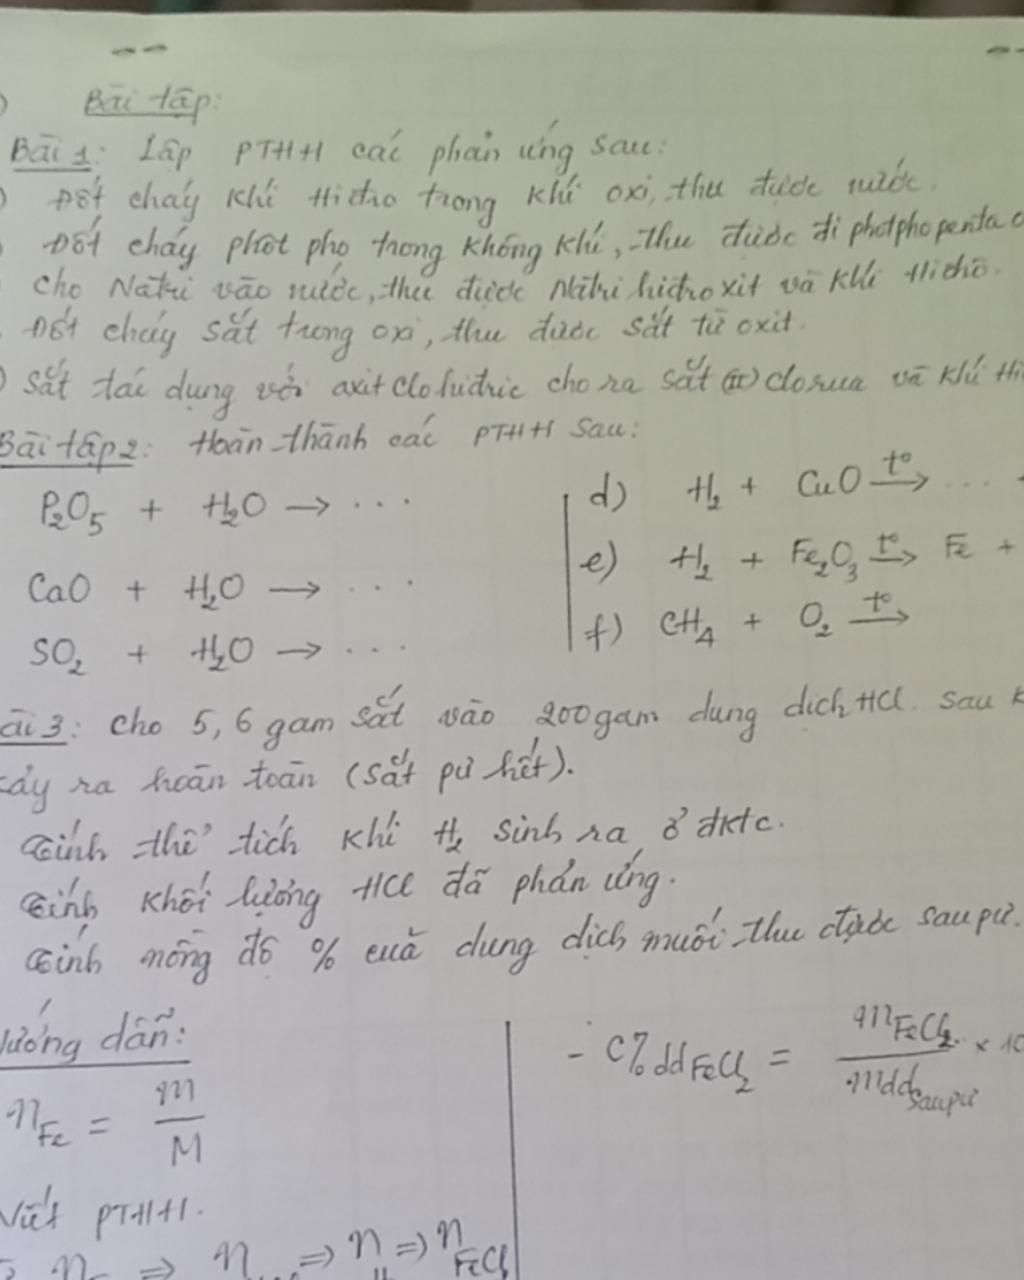 Bài tập:
Bài 1: Lập PTHH các phản ứng sau:
Đốt cháy khí Hiđro trong khí oxi, thu được nước.
Đốt cháy phốt pho trong không khí, thu được đi photpho penta
Cho Natri vào nước, thu được Natri hiđroxit và khí Hiđrô.
Đốt cháy sắt trong oxi, thu được sắt từ oxit.
Sắt tác dụng với axit Clohiđric cho ra sắt (II) clorua và khí Hi
Bài tập 2: Hoàn thành các PTHH sau:
P₂O₅ + H₂O → ...
CaO + H₂O → ...
SO₂ + H₂O → ...
d) H₂ + CuO —t°→ ...
e) H₂ + Fe₂O₃ —t°→ Fe +
f) CH₄ + O₂ —t°→
ài 3: Cho 5,6 gam sắt vào 200gam dung dịch HCl. Sau k
xảy ra hoàn toàn (sắt pư hết).
Tính thể tích khí H₂ sinh ra ở đktc.
Tính khối lượng HCl đã phản ứng.
Tính nồng độ % của dung dịch muối thu được sau pư.
ướng dẫn:
n_Fe = m/M
Viết PTHH.
⇒ n ⇒ n ⇒ n_FeCl₂
- C% dd FeCl₂ = m_FeCl₂ / mdd_sau pư × 10